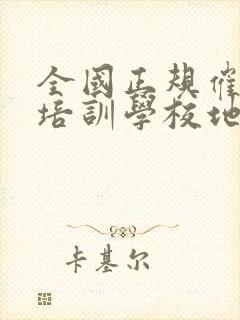 全國正規催
培訓學校地
卡基尔